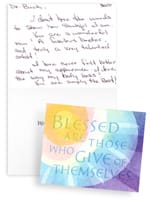 Dr. Buck,
I don't have the words
to show how thankful I am
You are a wonderful
man. A fabulous Doctor,
and truly a very talented
artist!
I have never felt better
about my appearance or
the way my body looks!
You are simply the Best!
BLESSED
ARE THOSE
WHO GIVE OF
THEMSELVES